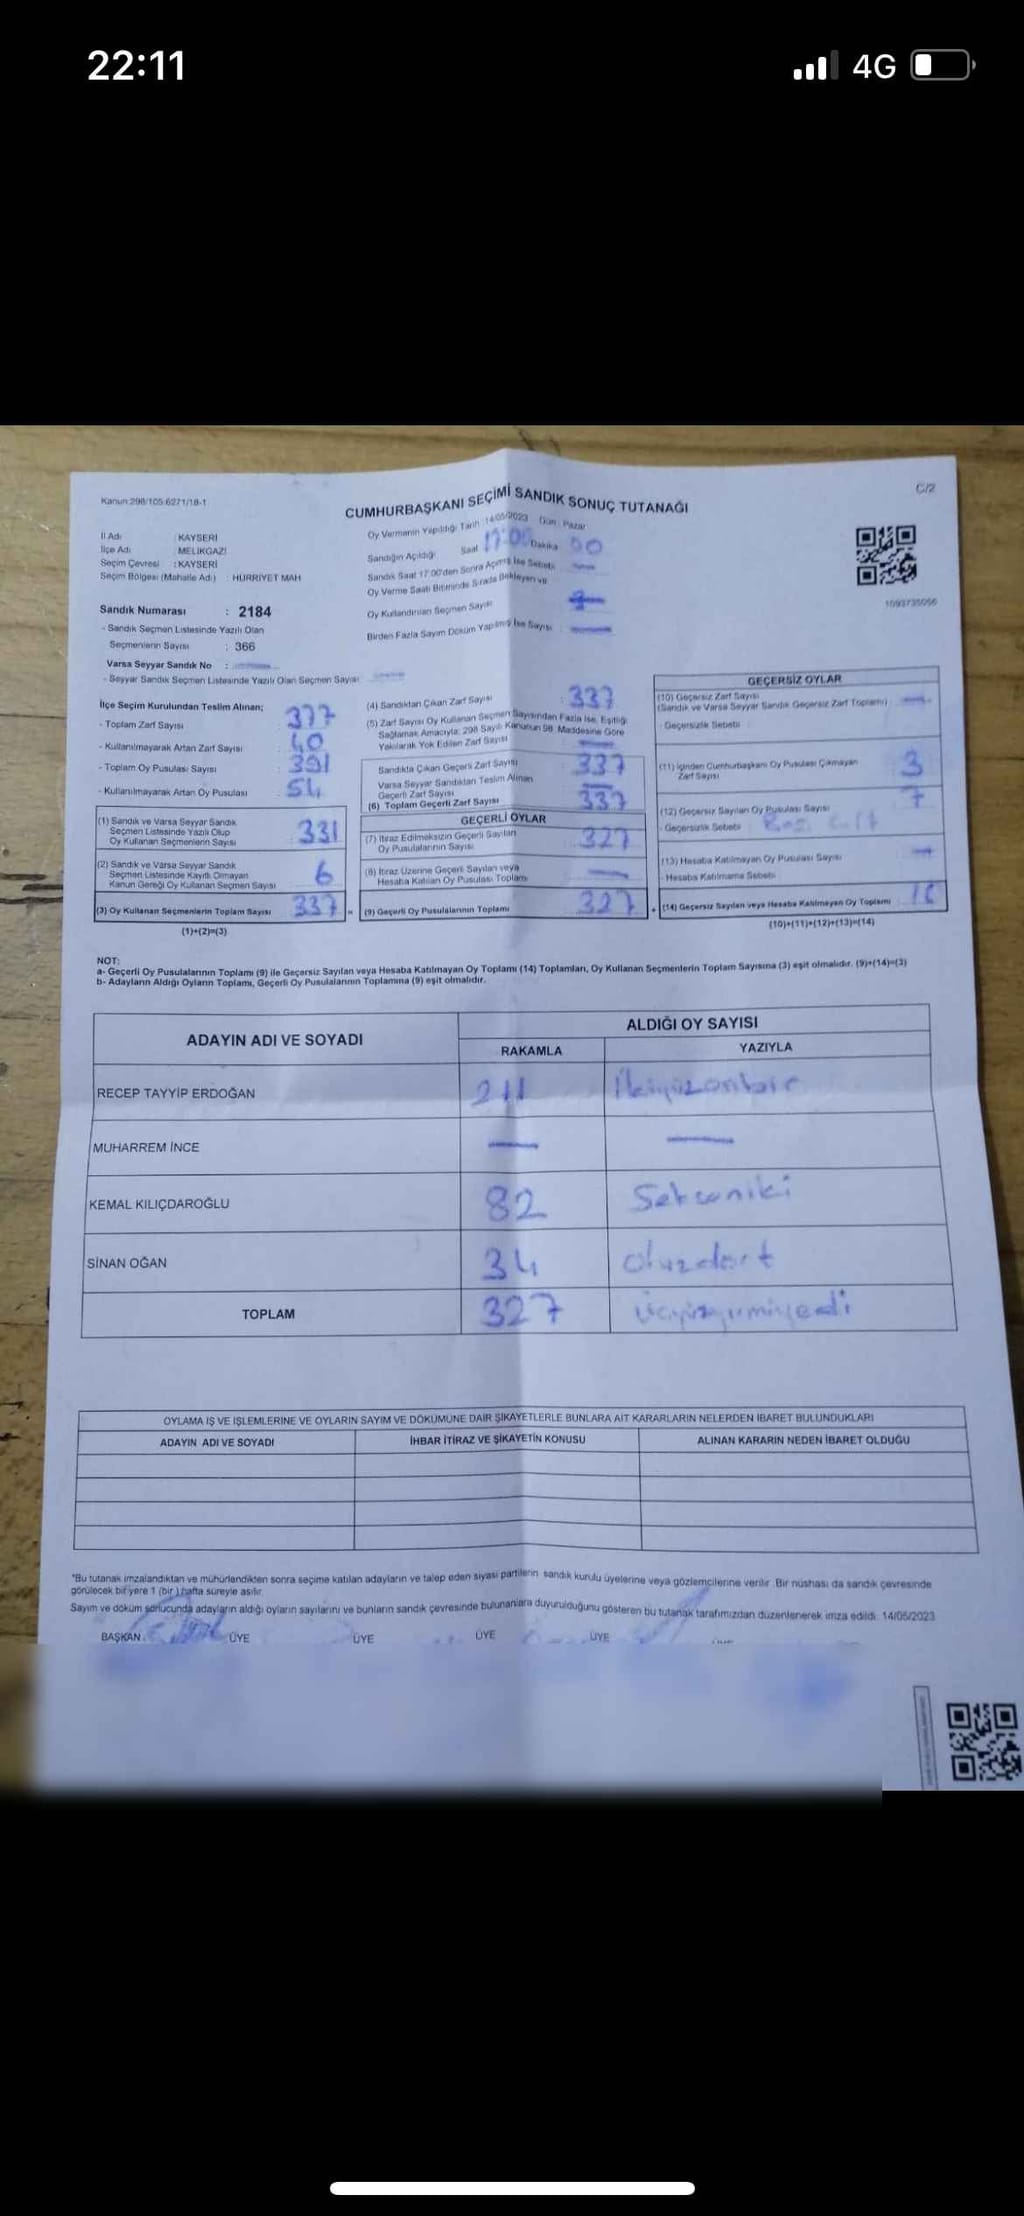 22:11
4G
Kanun:298/105-6271/18-1
C/2
CUMHURBAŞKANI SEÇİMİ SANDIK SONUÇ TUTANAĞI
İl Adı : KAYSERİ
İlçe Adı MELİKGAZİ
Seçim Çevresi : KAYSERİ
Seçim Bölgesi (Mahalle Adı) : HÜRRİYET MAH
Oy Vermenin Yapıldığı Tarih :14/05/2023 Gün : Pazar
Sandığın Açıldığı Saat 17:00 Dakika 00
Sandık Saat 17:00'den Sonra Açılmış İse Sebebi
Oy Verme Saati Bitiminde Sırada Bekleyen ve
Oy Kullandırılan Seçmen Sayısı
Birden Fazla Sayım Döküm Yapılmış İse Sayısı :
Sandık Numarası : 2184
- Sandık Seçmen Listesinde Yazılı Olan
Seçmenlerin Sayısı : 366
Varsa Seyyar Sandık No :
- Seyyar Sandık Seçmen Listesinde Yazılı Olan Seçmen Sayısı
İlçe Seçim Kurulundan Teslim Alınan;
- Toplam Zarf Sayısı : 377
- Kullanılmayarak Artan Zarf Sayısı : 40
- Toplam Oy Pusulası Sayısı : 391
- Kullanılmayarak Artan Oy Pusulası : 54
(1) Sandık ve Varsa Seyyar Sandık
Seçmen Listesinde Yazılı Olup
Oy Kullanan Seçmenlerin Sayısı : 331
(2) Sandık ve Varsa Seyyar Sandık
Seçmen Listesinde Kayıtlı Olmayan
Kanun Gereği Oy Kullanan Seçmen Sayısı 6
(3) Oy Kullanan Seçmenlerin Toplam Sayısı 337 =
(1)+(2)=(3)
(4) Sandıktan Çıkan Zarf Sayısı : 337
(5) Zarf Sayısı Oy Kullanan Seçmen Sayısından Fazla İse, Eşitliği
Sağlamak Amacıyla; 298 Sayılı Kanunun 98. Maddesine Göre
Yakılarak Yok Edilen Zarf Sayısı
Sandıkta Çıkan Geçerli Zarf Sayısı : 337
Varsa Seyyar Sandıktan Teslim Alınan
Geçerli Zarf Sayısı
(6) Toplam Geçerli Zarf Sayısı 337
GEÇERLİ OYLAR
(7) İtiraz Edilmeksizin Geçerli Sayılan
Oy Pusulalarının Sayısı 327
(8) İtiraz Üzerine Geçerli Sayılan veya
Hesaba Katılan Oy Pusulası Toplamı
(9) Geçerli Oy Pusulalarının Toplamı 327 +
GEÇERSİZ OYLAR
(10) Geçersiz Zarf Sayısı
(Sandık ve Varsa Seyyar Sandık Geçersiz Zarf Toplamı)
Geçersizlik Sebebi
(11) İçinden Cumhurbaşkanı Oy Pusulası Çıkmayan
Zarf Sayısı 3
(12) Geçersiz Sayılan Oy Pusulası Sayısı 7
Geçersizlik Sebebi
(13) Hesaba Katılmayan Oy Pusulası Sayısı
Hesaba Katılmama Sebebi
(14) Geçersiz Sayılan veya Hesaba Katılmayan Oy Toplamı
(10)+(11)+(12)+(13)=(14)
NOT:
a- Geçerli Oy Pusulalarının Toplamı (9) ile Geçersiz Sayılan veya Hesaba Katılmayan Oy Toplamı (14) Toplamları, Oy Kullanan Seçmenlerin Toplam Sayısına (3) eşit olmalıdır. (9)+(14)=(3)
b- Adayların Aldığı Oyların Toplamı, Geçerli Oy Pusulalarının Toplamına (9) eşit olmalıdır.
ADAYIN ADI VE SOYADI ALDIĞI OY SAYISI
RAKAMLA YAZIYLA
RECEP TAYYİP ERDOĞAN 211 İkiyüzonbir
MUHARREM İNCE
KEMAL KILIÇDAROĞLU 82 Seksaniki
SİNAN OĞAN 34 otuzdört
TOPLAM 327 üçyüzyirmiyedi
OYLAMA İŞ VE İŞLEMLERİNE VE OYLARIN SAYIM VE DÖKÜMÜNE DAİR ŞİKAYETLERLE BUNLARA AİT KARARLARIN NELERDEN İBARET BULUNDUKLARI
ADAYIN ADI VE SOYADI İHBAR İTİRAZ VE ŞİKAYETİN KONUSU ALINAN KARARIN NEDEN İBARET OLDUĞU
"Bu tutanak imzalandıktan ve mühürlendikten sonra seçime katılan adayların ve talep eden siyasi partilerin sandık kurulu üyelerine veya gözlemcilerine verilir. Bir nüshası da sandık çevresinde
görülecek bir yere 1 (bir) hafta süreyle asılır.
Sayım ve döküm sonucunda adayların aldığı oyların sayılarını ve bunların sandık çevresinde bulunanlara duyurulduğunu gösteren bu tutanak tarafımızdan düzenlenerek imza edildi. 14/05/2023
BAŞKAN ÜYE ÜYE ÜYE ÜYE